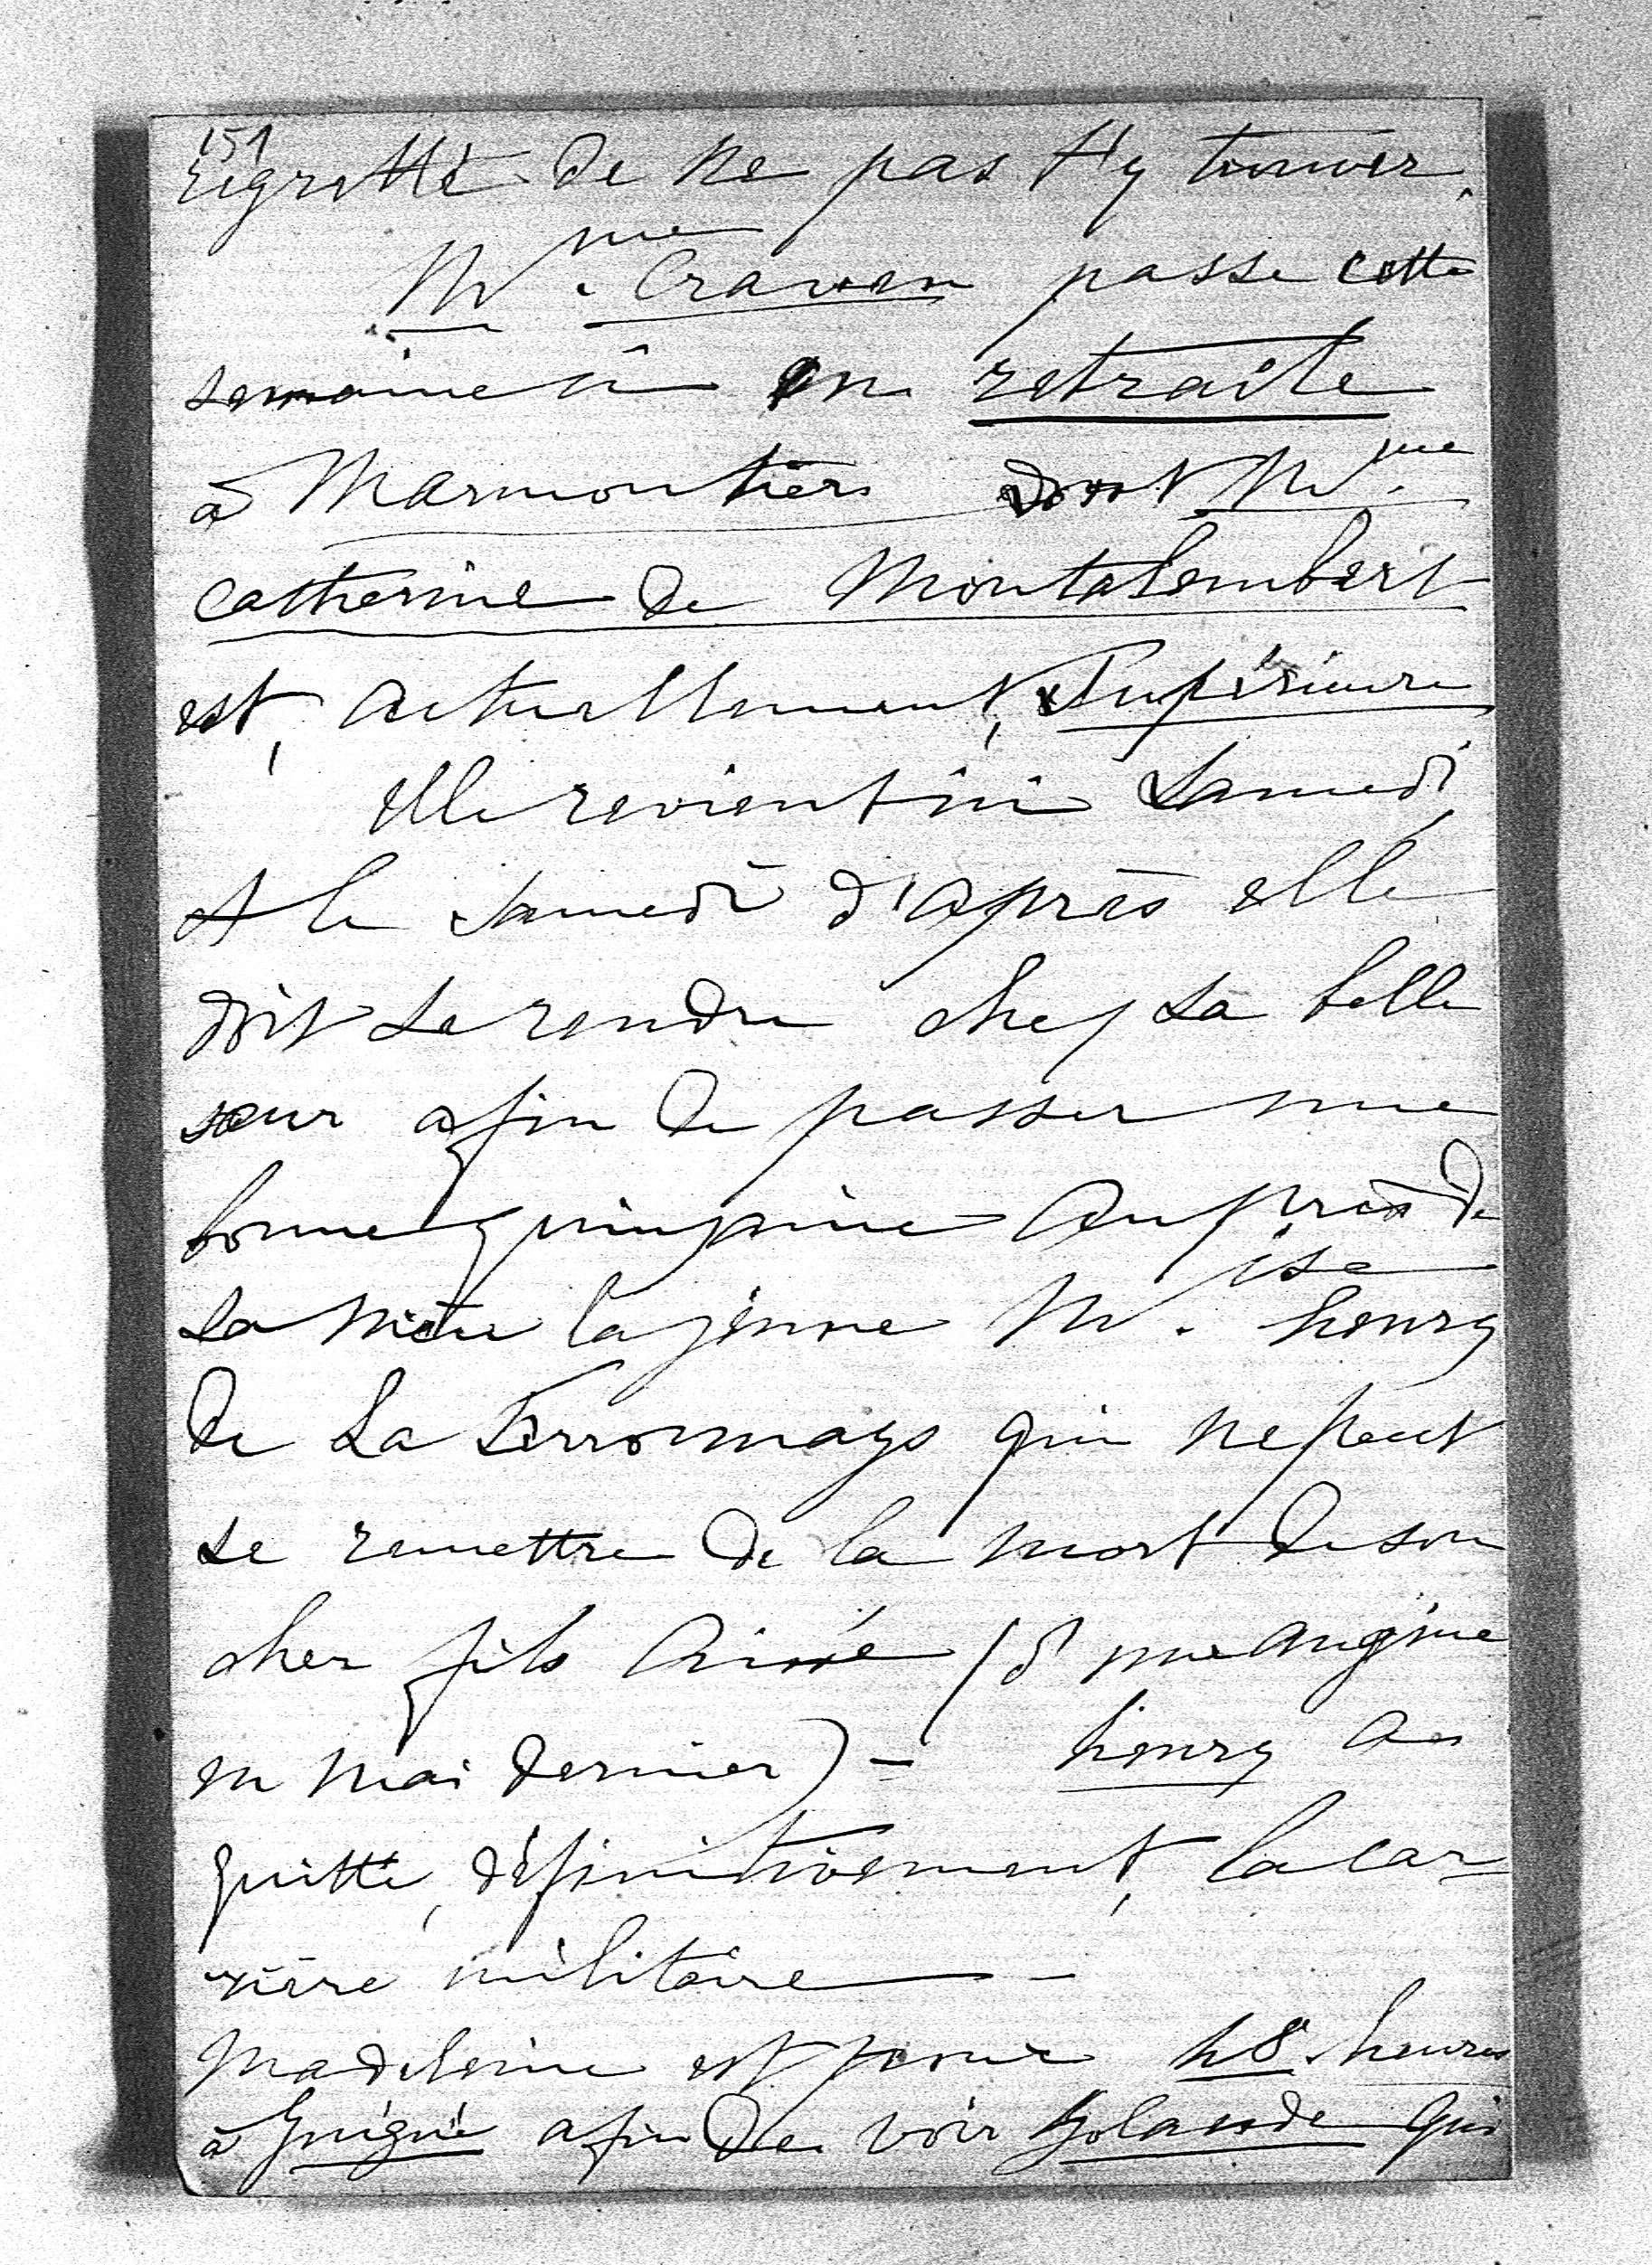 151
regretté de ne pas t'y trouver.
Mme. Craven passe cette
semaine ci en retraite
à Marmoutiers dont Mme.
Catherine de Montalembert
est, actuellement, Supérieure
elle revient ici Samedi
et le samedi d'après elle
doit se rendre chez sa belle
soeur afin de passer une
bonne quinzaine auprès de
sa nièce la jeune Mise. henry
de La Ferronnays qui ne peut
se remettre de la mort de son
cher fils Aimé (d'une angine
en mai dernier) - henry a
quitté, définitivement, la car-
rière militaire -
Madeleine est pour 48 heures
à afin de voir Yolande qui